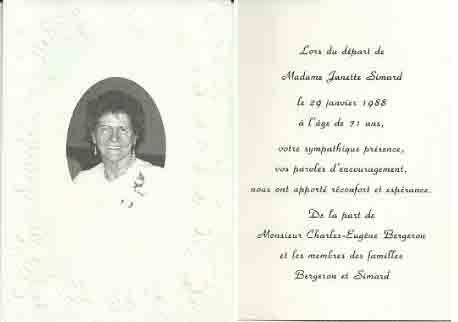 Lors du départ de
Madame Janette Simard
le 29 janvier 1988
à l'âge de 71 ans,
votre sympathique présence,
vos paroles d'encouragement,
nous ont apporté réconfort et espérance.
De la part de
Monsieur Charles-Eugène Bergeron
et les membres des familles
Bergeron et Simard